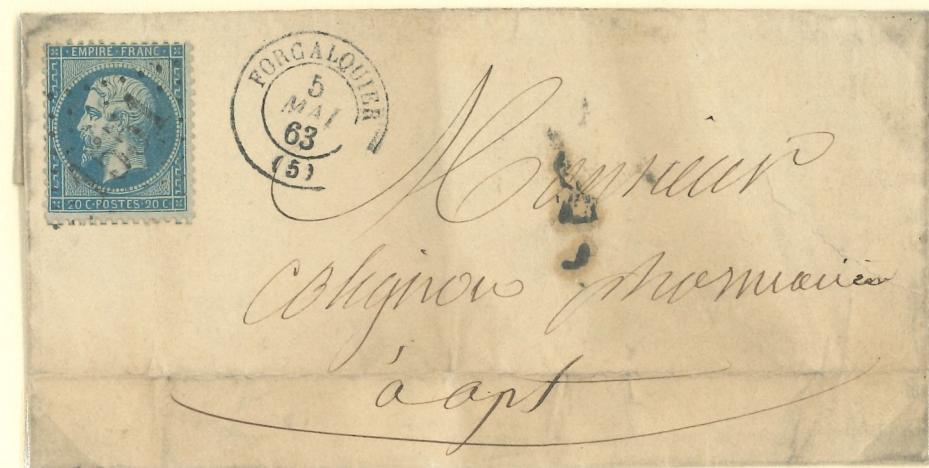 EMPIRE FRANC
20 C·POSTES·20 C
FORCALQUIER
5
MAI
63
(5)
Monsieur
Colignon pharmacien
à apt